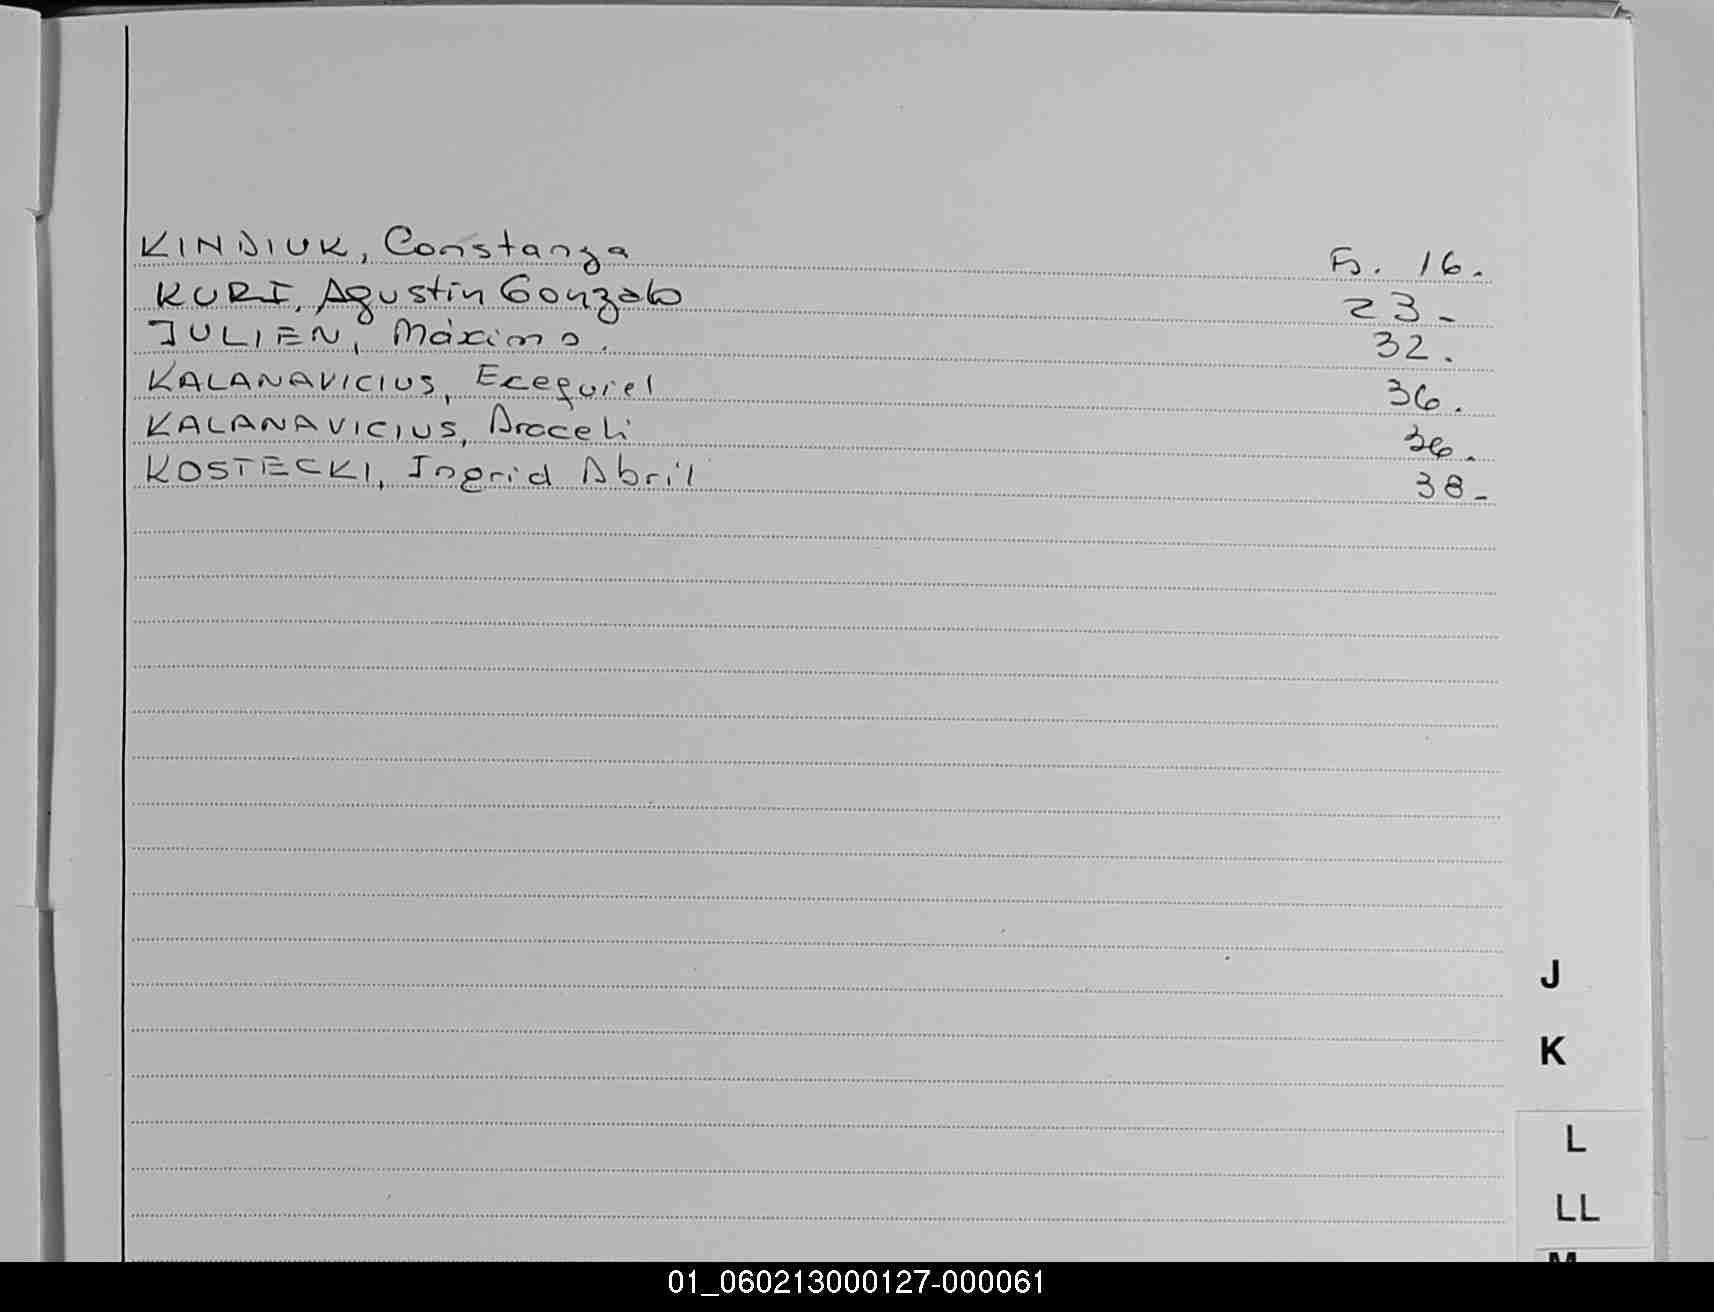 KINDIUK, Constanza Fs. 16.
KURI, Agustín Gonzalo 23-
JULIEN, Máximo. 32.
KALANAVICIUS, Ecequiel 36.
KALANAVICIUS, Araceli 36.
KOSTECKI, Ingrid Abril 38-
J
K
L
LL
M
01_060213000127-000061